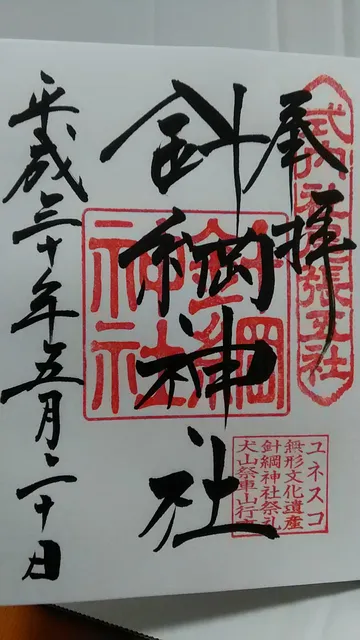 奉拝
式内社尾張五社
針綱神社
針綱
神社
ユネスコ
無形文化遺産
針綱神社祭礼
犬山祭車山行事
平成三十年五月二十日